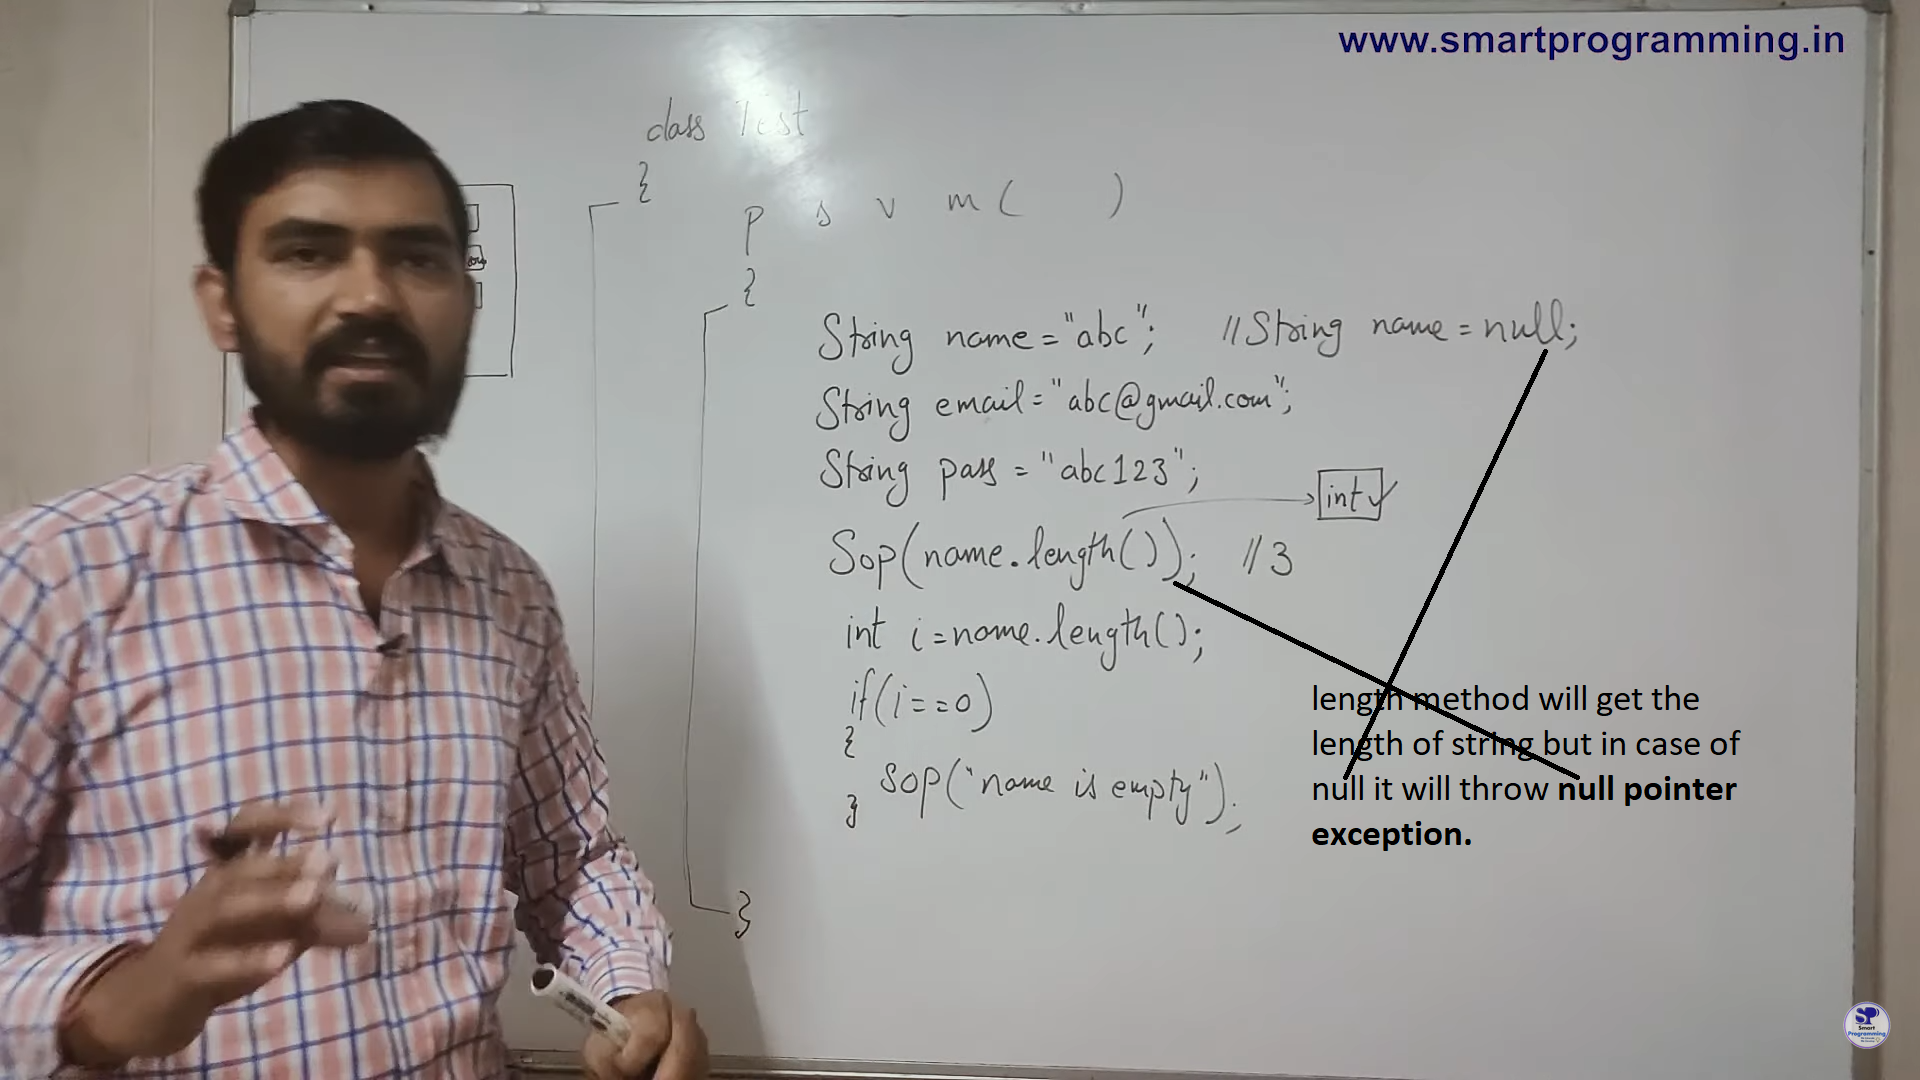 www.smartprogramming.in
class Test
{
p s v m ( )
{
String name = "abc"; //String name = null;
String email = "abc@gmail.com";
String pass = "abc123";
int ✓
Sop(name.length()); //3
int i = name.length();
if(i==0)
{
SOP("name is empty");
}
}
length method will get the
length of string but in case of
null it will throw null pointer
exception.
SP
Smart
Programming